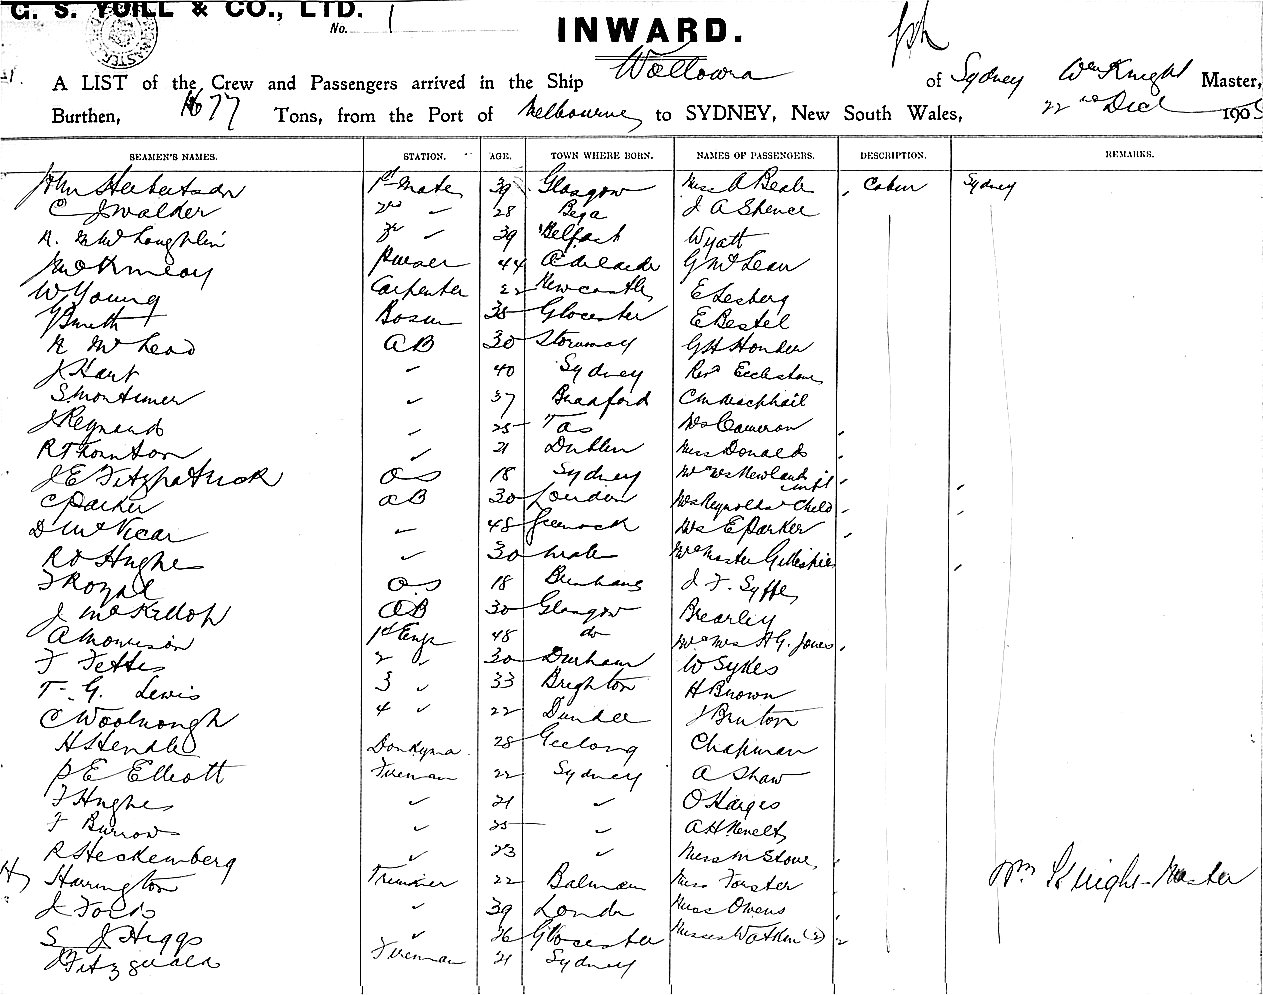 G. S. YUILL & CO., LTD.
No. 1
INWARD.
A LIST of the Crew and Passengers arrived in the Ship Wollowra of Sydney Wm Knight Master,
Burthen, 1677 Tons, from the Port of Melbourne to SYDNEY, New South Wales, 22nd Decr 190
SEAMEN'S NAMES. STATION. AGE. TOWN WHERE BORN. NAMES OF PASSENGERS. DESCRIPTION. REMARKS.
John 1st Mate 39 Glasgow Miss A Beale Cabin Sydney
C J Walder 2nd 28 Bega J A Spence
39 Belfast Wyatt
Purser 44 Adelaide G McLean
W Young Carpenter 22 Newcastle E Lesberg
Smith Bosun 35 Glocester E Bestel
R McLeod AB 30 Stornway G H
J Hart 40 Sydney Revd Ecclestone
S Mortimer 37 Bradford C Macphail
J 25 Tas Mrs Cameron
R Thornton 21 Dublin Miss Donald
J E Fitzpatrick OS 18 Sydney Mr & Mrs Newland inft
C Parker AB 30 London Mrs Reynolds & Child
D McVicar 48 Greenock Mrs E Parker
R O Hughes 30 Master Gillespie
F Royal OS 18 J. F. Syffe
J McKillop AB 30 Glasgow Brearley
A Morrison 1st Engr 48 do Mr & Mrs H G. Jones
F Fettes 2 30 Durham W Sykes
T. G. Lewis 3 33 Brighton H Brown
C Woolnough 4 22 Dundee J Bruton
H Donkyman 28 Geelong Chapman
E Elliott Fireman 22 Sydney A Shaw
F Hughes 21 O Harges
F Burrows 25 A H
R Heckemberg 23 Miss M Stone
Harrington Trimmer 22 Balmain Miss Forster
Wm Knight Master
J 39 Miss Owens
S J Higgs 26 Glocester Misses Watkin (2) 2
Fitzgerald Fireman 21 Sydney